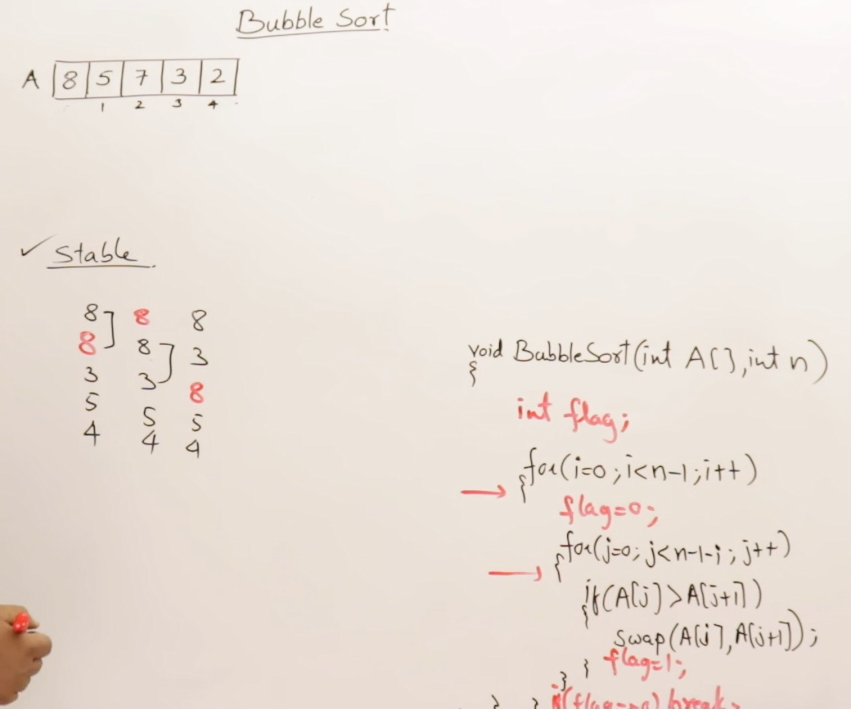 Bubble Sort
A 8 5 7 3 2
1 2 3 4
✓ Stable
8 8 8
8 8 3
3 3 8
5 5 5
4 4 4
void BubbleSort(int A[], int n)
{
int flag;
for(i=0; i<n-1; i++)
{
flag=0;
for(j=0; j<n-1-i; j++)
{
if(A[j]>A[j+1])
{
swap(A[j], A[j+1]);
flag=1;
}
}
if(flag==0) break;
} }